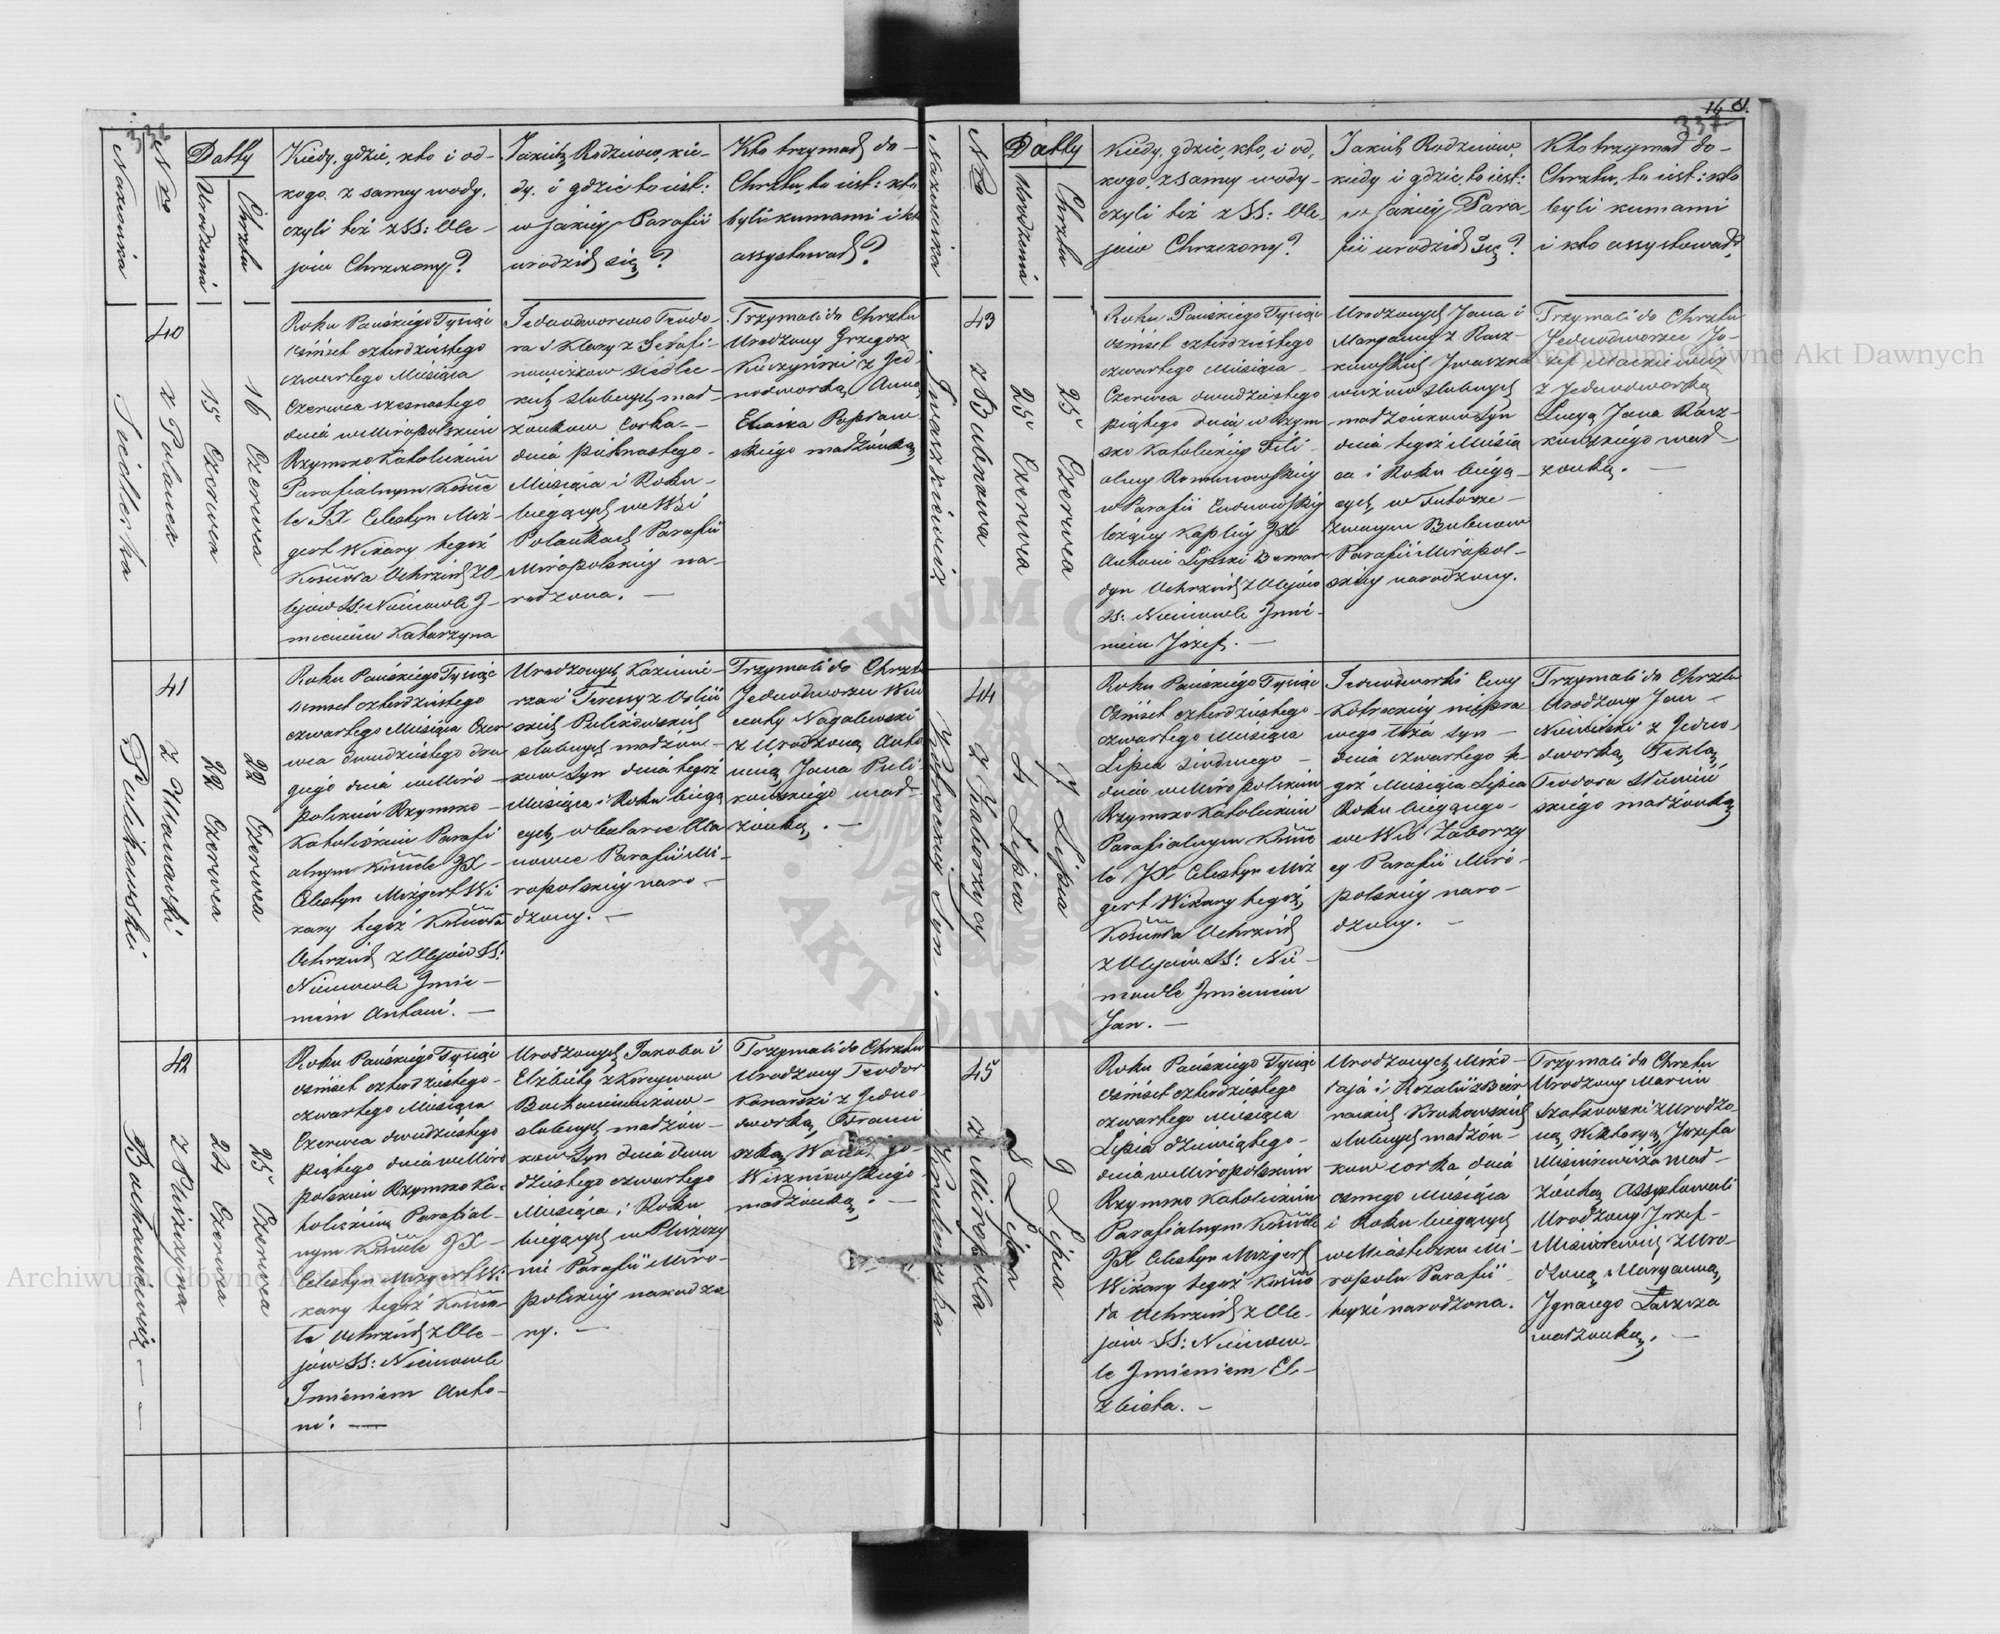 332
Nazwiska
Nro
Datty
Urodzenia
Chrztu
Kiedy, gdzie, kto i od-
kogo, z samey wody,
czyli też z SS: Ole-
jów Chrzczony?
Jakich Rodziców, kie-
dy, i gdzie to iest:
w jakiéy Parafii
urodził się?
Kto trzymał do-
Chrztu, to iest: kto
byli kumami i kto
assystował?
40
Siedlecka
z Polanek
15 Czerwca
16 Czerwca
Roku Pańskiego Tysiąc
ośmset czterdziestego
czwartego Miesiąca
Czerwca szesnastego
dnia w Miropolskim
Rzymsko Katolickim
Parafialnym Koście
le JX Celestyn Miz-
gert Wikary tegoż
Kościoła Ochrzcił z O-
lejów SS: Niemowle I-
mieniem Katarzyna
Jednodworców Teodo-
ra i Klary z Serafi-
nowiczow Siedlec-
kich slubnych mał-
żonkow Corka-
dnia piętnastego-
Miesiąca i Roku-
bieżących we Wsi
Polankach Parafii
Miropolskiéy na-
rodzona. —
Trzymali do Chrztu
Urodzony Grzegorz
Kuczyński z Jed-
nodworką Anną
Eliasza Popław
skiego małżonką
41
Pulikowski
z Ulanowki
22 Czerwca
22 Czerwca
Roku Pańskiego Tysiąc
ośmset czterdziestego
czwartego Miesiąca Czer
wca dwudziestego dru
giego dnia w Miro-
polskim Rzymsko-
Katolickim Parafi
alnym Kościele JX-
Celestyn Mizgert Wi
kary tegoż Kościoła
Ochrzcił z Olejów SS:
Niemowle Imie-
niem Antoni. —
Urodzonych Kazimie-
rza i Teressy z
skich Pulikowskich
slubnych małżon-
kow Syn dnia tegoż
Miesiąca i Roku bieżą
cych, w Ula
nowce Parafii Mi-
ropolskiéy naro-
dzony. —
Trzymali do Chrztu
Jednodworzec Win
centy Nagalewski
z Urodzoną Anto
niną Jana Puli
kowskiego mał-
żonką. —
42
Bochaniewicz —
z Pluszczyna
24 Czerwca
25 Czerwca
Roku Pańskiego Tysiąc
ośmset czterdziestego-
czwartego Miesiąca
Czerwca dwudziestego
piątego dnia w Miro
polskim Rzymsko Ka-
tolickim Parafial-
nym Kościele JX-
Celestyn Mizgert Wi
kary tegoż Koscio-
ła Ochrzcił z Ole-
jów SS: Niemowle
Imieniem Anto-
ni. —
Urodzonych Jakoba i
Elżbiety z
Bochaniewiczow-
slubnych małżon-
kow Syn dnia dwu
dziestego czwartego
Miesiąca i Roku
bieżących w Pluszczy
nie Parafii Miro-
polskiéy narodzo
ny. —
Trzymali do Chrztu
Urodzony Teodor
Konarski z Jedno
dworką Franci
szką
Wiszniowskiego
małżonką. —
337
Nazwiska
Nro
Datty
Urodzenia
Chrztu
Kiedy, gdzie, kto, i od,
kogo, z samey wody-
czyli też z SS: Ole-
jów Chrzczony?
Jakich Rodziców,
kiedy i gdzie, to iest:
w jakiéy Para-
fii urodził się?
Kto trzymał do-
Chrztu, to iest: kto
byli kumami
i kto assystował?
43
Iwaszkiewicz
z Bubnowa
25 Czerwca
25 Czerwca
Roku Pańskiego Tysiąc
ośmset czterdziestego
czwartego Miesiąca-
Czerwca dwudziestego
piątego dnia w Rzym
sko Katolickiéy Fili-
alney Romanowskiéy
w Parafii Cudnowskiéy
leżącéy Kaplicy JX
Antoni Lipski Bernar
dyn Ochrzcił z Olejów
SS: Niemowle Imie-
niem Jozef. —
Urodzonych Jana i
Maryanny z Racz-
kowskich Iwaszkie
wiczow slubnych
małżonkow Syn
dnia tegoż Miesią
ca i Roku bieżą-
cych, w Futorze-
zwanym Bubnow
Parafii Miropol-
skiéy narodzony.
Trzymali do Chrztu
Jednodworzec Jo-
zef Mackiewicz
z Jednodworką
Łucyą Jana Racz-
kowskiego mał-
żonką. —
44
z Zaborzycy
4 Lipca
7 Lipca
Roku Pańskiego Tysiąc
ośmset czterdziestego-
czwartego Miesiąca
Lipca siódmego-
dnia w Miropolskim
Rzymsko Katolickim
Parafialnym Koście
le JX Celestyn Miz
gert Wikary tegoż
Kościoła Ochrzcił
z Olejów SS: Nie-
mowle Imieniem
Jan. —
Jednodworki Ewy
niepra
wego łoża Syn-
dnia czwartego te-
goż Miesiąca Lipca
Roku bieżącego-
we Wsi Zaborzy
cy Parafii Miro-
polskiéy naro-
dzony. —
Trzymali do Chrztu
Urodzony Jan-
z Jedno-
dworką Teklą
Teodora
skiego małżonką
45
Krukowska
z Miropola
8 Lipca
9 Lipca
Roku Pańskiego Tysiąc
ośmset czterdziestego
czwartego Miesiąca
Lipca dziewiątego-
dnia w Miropolskim
Rzymsko Katolickim
Parafialnym Kościele
JX Celestyn Mizgert
Wikary tegoż Koscio
ła Ochrzcił z Ole-
jów SS: Niemow-
le Imieniem El-
żbieta. —
Urodzonych Miko-
łaja i Rozalii z Bier
nackich Krukowskich
slubnych małżon-
kow corka dnia
osmego Miesiąca
i Roku bieżących
w Miasteczku Mi-
ropolu Parafii
teyże narodzona.
Trzymali do Chrztu
Urodzony Marcin
z Urodzo-
ną Wiktoryą Jozefa
Misiurewicza mał-
żonką Assystowali
Urodzony Jozef-
Misiurewicz z Uro-
dzoną Maryanną
Ignacego
małżonką. —
Archiwum Główne Akt Dawnych
Archiwum Główne Akt Dawnych